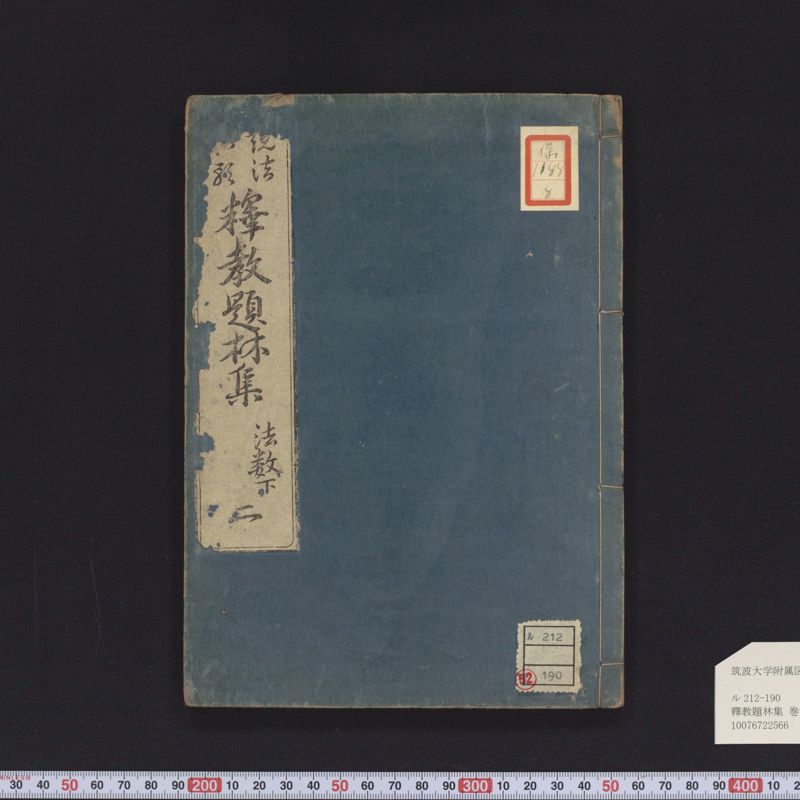 説法
釋教題林集
法数下
二
1188
8
ル 212
190
筑波大学附属図
ル 212-190
釋教題林集 巻
10076722566
30 40 50 60 70 80 90 200 10 20 30 40 50 60 70 80 90 300 10 20 30 40 50 60 70 80 90 400 10